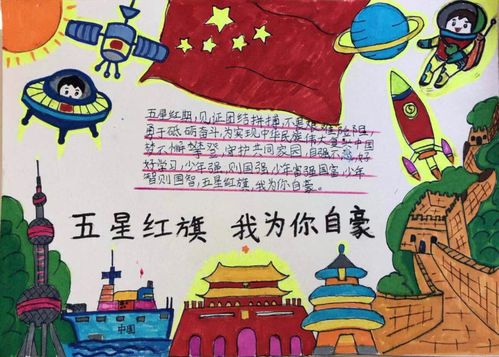 五星红旗,见证团结拼搏,不畏艰难险阻,
勇于砥砺奋斗,为实现中华民族伟大复兴中国
梦不懈攀登,守护共同家园,自强不息,好
好学习,少年强,则国强,少年富强国富,少年
智则国智,五星红旗,我为你自豪。
五星红旗 我为你自豪
中国